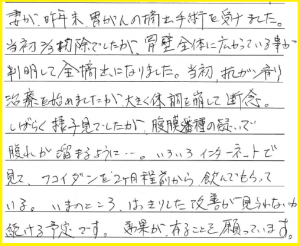 妻が、昨年末胃がんの摘出手術を受けました。
当初部分切除でしたが、胃壁全体に広がっている事が
判明して全摘出になりました。当初、抗ガン剤
治療を始めましたが大きく体調を崩して断念。
しばらく様子見でしたが、腹膜播種の疑いで
腹水が溜まるように…。いろいろインターネットで
見て、フコイダンを2ヶ月程前から飲んでもらって
いる。いまのところ、はっきりした改善が見られないが
続ける予定です。効果が有ることを願っています。